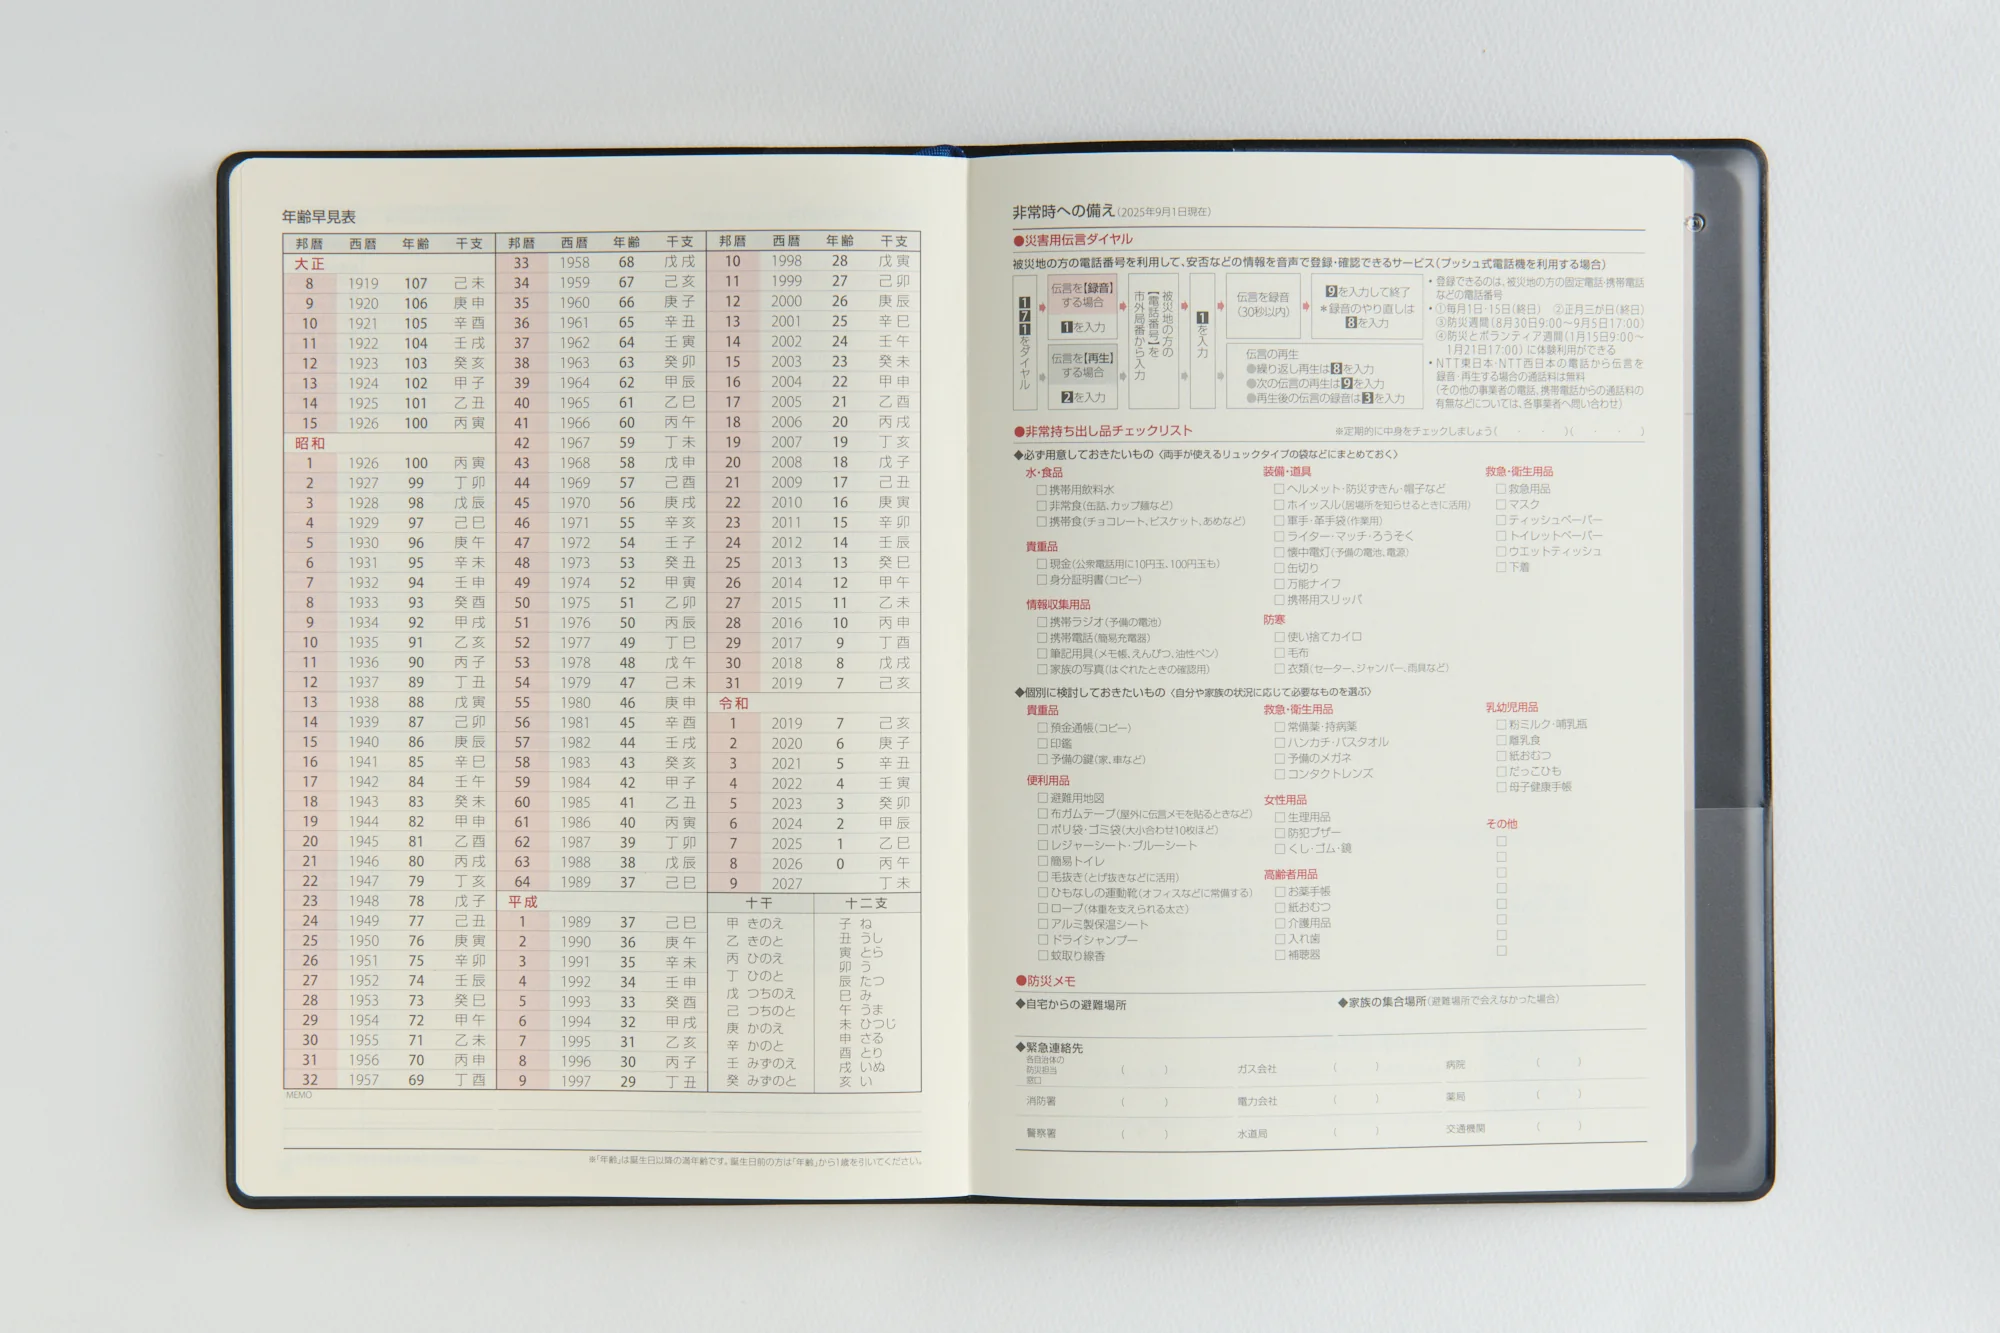 年齢早見表
邦暦 西暦 年齢 干支
大正
8 1919 107 己未
9 1920 106 庚申
10 1921 105 辛酉
11 1922 104 壬戌
12 1923 103 癸亥
13 1924 102 甲子
14 1925 101 乙丑
15 1926 100 丙寅
昭和
1 1926 100 丙寅
2 1927 99 丁卯
3 1928 98 戊辰
4 1929 97 己巳
5 1930 96 庚午
6 1931 95 辛未
7 1932 94 壬申
8 1933 93 癸酉
9 1934 92 甲戌
10 1935 91 乙亥
11 1936 90 丙子
12 1937 89 丁丑
13 1938 88 戊寅
14 1939 87 己卯
15 1940 86 庚辰
16 1941 85 辛巳
17 1942 84 壬午
18 1943 83 癸未
19 1944 82 甲申
20 1945 81 乙酉
21 1946 80 丙戌
22 1947 79 丁亥
23 1948 78 戊子
24 1949 77 己丑
25 1950 76 庚寅
26 1951 75 辛卯
27 1952 74 壬辰
28 1953 73 癸巳
29 1954 72 甲午
30 1955 71 乙未
31 1956 70 丙申
32 1957 69 丁酉
邦暦 西暦 年齢 干支
33 1958 68 戊戌
34 1959 67 己亥
35 1960 66 庚子
36 1961 65 辛丑
37 1962 64 壬寅
38 1963 63 癸卯
39 1964 62 甲辰
40 1965 61 乙巳
41 1966 60 丙午
42 1967 59 丁未
43 1968 58 戊申
44 1969 57 己酉
45 1970 56 庚戌
46 1971 55 辛亥
47 1972 54 壬子
48 1973 53 癸丑
49 1974 52 甲寅
50 1975 51 乙卯
51 1976 50 丙辰
52 1977 49 丁巳
53 1978 48 戊午
54 1979 47 己未
55 1980 46 庚申
56 1981 45 辛酉
57 1982 44 壬戌
58 1983 43 癸亥
59 1984 42 甲子
60 1985 41 乙丑
61 1986 40 丙寅
62 1987 39 丁卯
63 1988 38 戊辰
64 1989 37 己巳
平成
1 1989 37 己巳
2 1990 36 庚午
3 1991 35 辛未
4 1992 34 壬申
5 1993 33 癸酉
6 1994 32 甲戌
7 1995 31 乙亥
8 1996 30 丙子
9 1997 29 丁丑
邦暦 西暦 年齢 干支
10 1998 28 戊寅
11 1999 27 己卯
12 2000 26 庚辰
13 2001 25 辛巳
14 2002 24 壬午
15 2003 23 癸未
16 2004 22 甲申
17 2005 21 乙酉
18 2006 20 丙戌
19 2007 19 丁亥
20 2008 18 戊子
21 2009 17 己丑
22 2010 16 庚寅
23 2011 15 辛卯
24 2012 14 壬辰
25 2013 13 癸巳
26 2014 12 甲午
27 2015 11 乙未
28 2016 10 丙申
29 2017 9 丁酉
30 2018 8 戊戌
31 2019 7 己亥
令和
1 2019 7 己亥
2 2020 6 庚子
3 2021 5 辛丑
4 2022 4 壬寅
5 2023 3 癸卯
6 2024 2 甲辰
7 2025 1 乙巳
8 2026 0 丙午
9 2027 丁未
十干
甲 きのえ
乙 きのと
丙 ひのえ
丁 ひのと
戊 つちのえ
己 つちのと
庚 かのえ
辛 かのと
壬 みずのえ
癸 みずのと
十二支
子 ね
丑 うし
寅 とら
卯 う
辰 たつ
巳 み
午 うま
未 ひつじ
申 さる
酉 とり
戌 いぬ
亥 い
MEMO
※「年齢」は誕生日以降の満年齢です。誕生日前の方は「年齢」から1歳を引いてください。
非常時への備え(2025年9月1日現在)
●災害用伝言ダイヤル
被災地の方の電話番号を利用して、安否などの情報を音声で登録・確認できるサービス(プッシュ式電話機を利用する場合)
171をダイヤル
伝言を【録音】
する場合
1を入力
伝言を【再生】
する場合
2を入力
被災地の方の
【電話番号】を
市外局番から入力
1を入力
伝言を録音
(30秒以内)
9を入力して終了
*録音のやり直しは
8を入力
伝言の再生
●繰り返し再生は8を入力
●次の伝言の再生は9を入力
●再生後の伝言の録音は3を入力
・登録できるのは、被災地の方の固定電話・携帯電話
などの電話番号
・①毎月1日・15日(終日) ②正月三が日(終日)
③防災週間(8月30日9:00～9月5日17:00)
④防災とボランティア週間(1月15日9:00～
1月21日17:00)に体験利用ができる
・NTT東日本・NTT西日本の電話から伝言を
録音・再生する場合の通話料は無料
(その他の事業者の電話、携帯電話からの通話料の
有無などについては、各事業者へ問い合わせ)
●非常持ち出し品チェックリスト ※定期的に中身をチェックしましょう( ・ ・ )( ・ ・ )
◆必ず用意しておきたいもの〈両手が使えるリュックタイプの袋などにまとめておく〉
水・食品
□携帯用飲料水
□非常食(缶詰、カップ麺など)
□携帯食(チョコレート、ビスケット、あめなど)
貴重品
□現金(公衆電話用に10円玉、100円玉も)
□身分証明書(コピー)
情報収集用品
□携帯ラジオ(予備の電池)
□携帯電話(簡易充電器)
□筆記用具(メモ帳、えんぴつ、油性ペン)
□家族の写真(はぐれたときの確認用)
装備・道具
□ヘルメット・防災ずきん・帽子など
□ホイッスル(居場所を知らせるときに活用)
□軍手・革手袋(作業用)
□ライター・マッチ・ろうそく
□懐中電灯(予備の電池、電源)
□缶切り
□万能ナイフ
□携帯用スリッパ
防寒
□使い捨てカイロ
□毛布
□衣類(セーター、ジャンパー、雨具など)
救急・衛生用品
□救急用品
□マスク
□ティッシュペーパー
□トイレットペーパー
□ウエットティッシュ
□下着
◆個別に検討しておきたいもの〈自分や家族の状況に応じて必要なものを選ぶ〉
貴重品
□預金通帳(コピー)
□印鑑
□予備の鍵(家、車など)
便利用品
□避難用地図
□布ガムテープ(屋外に伝言メモを貼るときなど)
□ポリ袋・ゴミ袋(大小合わせ10枚ほど)
□レジャーシート・ブルーシート
□簡易トイレ
□毛抜き(とげ抜きなどに活用)
□ひもなしの運動靴(オフィスなどに常備する)
□ロープ(体重を支えられる太さ)
□アルミ製保温シート
□ドライシャンプー
□蚊取り線香
救急・衛生用品
□常備薬・持病薬
□ハンカチ・バスタオル
□予備のメガネ
□コンタクトレンズ
女性用品
□生理用品
□防犯ブザー
□くし・ゴム・鏡
高齢者用品
□お薬手帳
□紙おむつ
□介護用品
□入れ歯
□補聴器
乳幼児用品
□粉ミルク・哺乳瓶
□離乳食
□紙おむつ
□だっこひも
□母子健康手帳
その他
□
□
□
□
□
□
□
□
●防災メモ
◆自宅からの避難場所 ◆家族の集合場所(避難場所で会えなかった場合)
◆緊急連絡先
各自治体の
防災担当
窓口 ( ) ガス会社 ( ) 病院 ( )
消防署 ( ) 電力会社 ( ) 薬局 ( )
警察署 ( ) 水道局 ( ) 交通機関 ( )